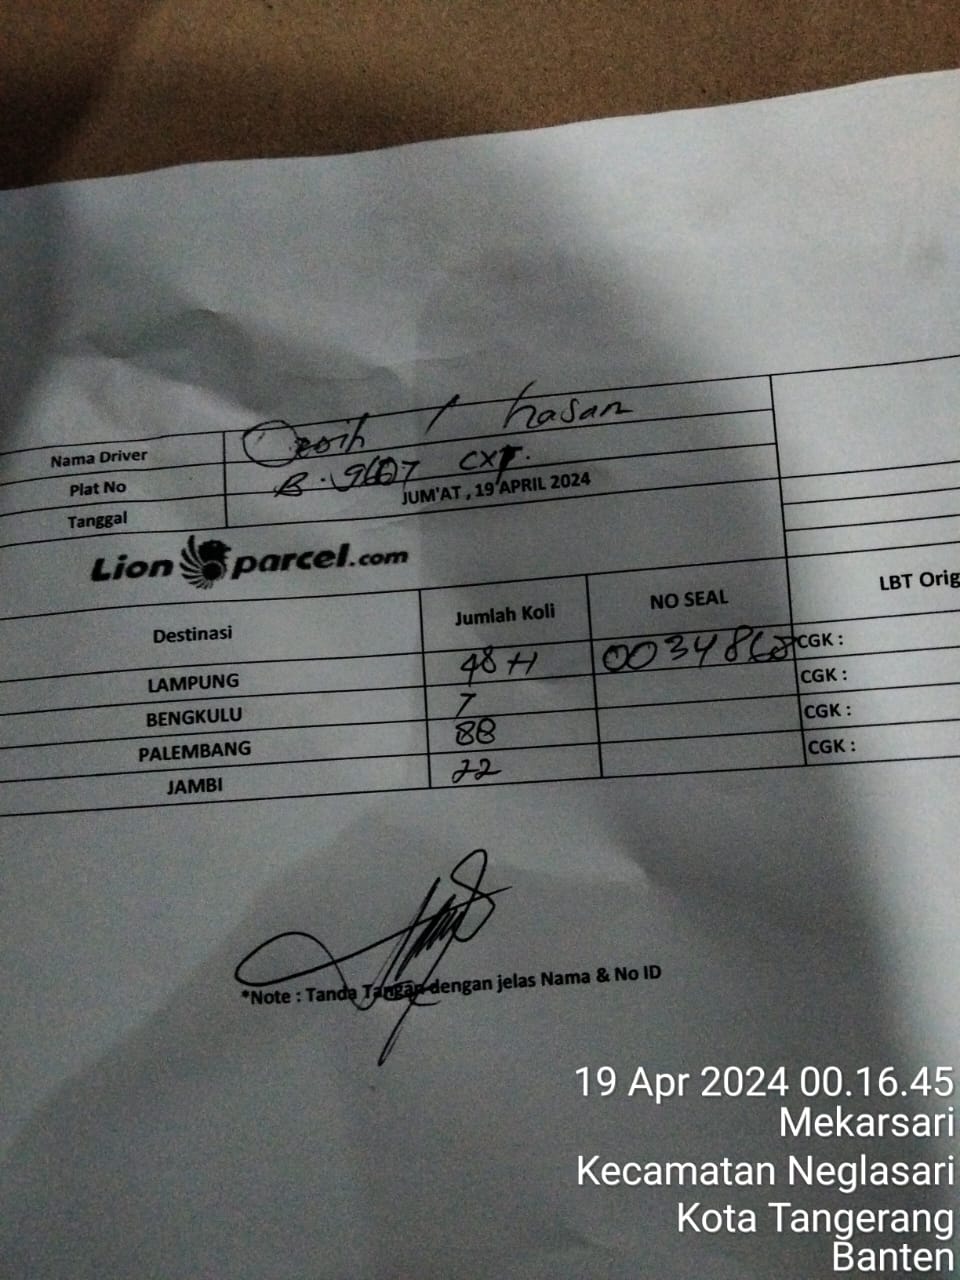 Nama Driver / hasan
Plat No B. CXT.
Tanggal JUM'AT , 19 APRIL 2024
Lion parcel.com
Destinasi Jumlah Koli NO SEAL LBT Orig
LAMPUNG 48 H CGK :
BENGKULU 7 CGK :
PALEMBANG 88 CGK :
JAMBI 22 CGK :
*Note : Tanda Tangan dengan jelas Nama & No ID
19 Apr 2024 00.16.45
Mekarsari
Kecamatan Neglasari
Kota Tangerang
Banten